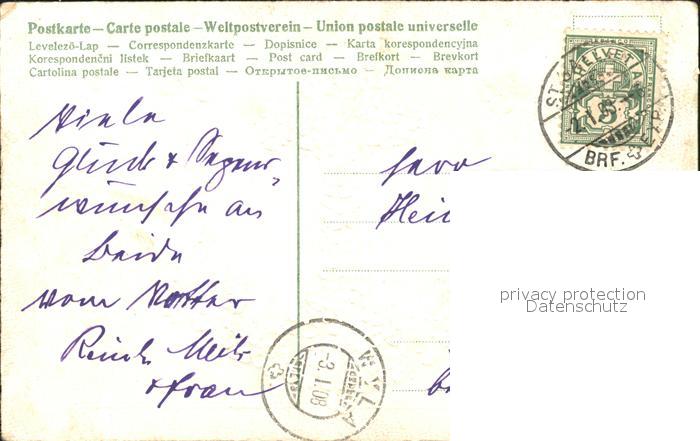 Postkarte – Carte postale – Weltpostverein – Union postale universelle
Levelező-Lap — Correspondenzkarte — Dopisnice — Karta korespondencyjna
Korespondenční lístek — Briefkaart — Post card — Brefkort — Brevkort
Cartolina postale — Tarjeta postal — Открытое-письмо — Дописна карта
HELVETIA
5
BRF.
Viele
Glück & Segens-
wünsche an
Beide
vom Vetter
Meili
& Frau
Herr
Hei
WYLA
-3.I.08
privacy protection
Datenschutz